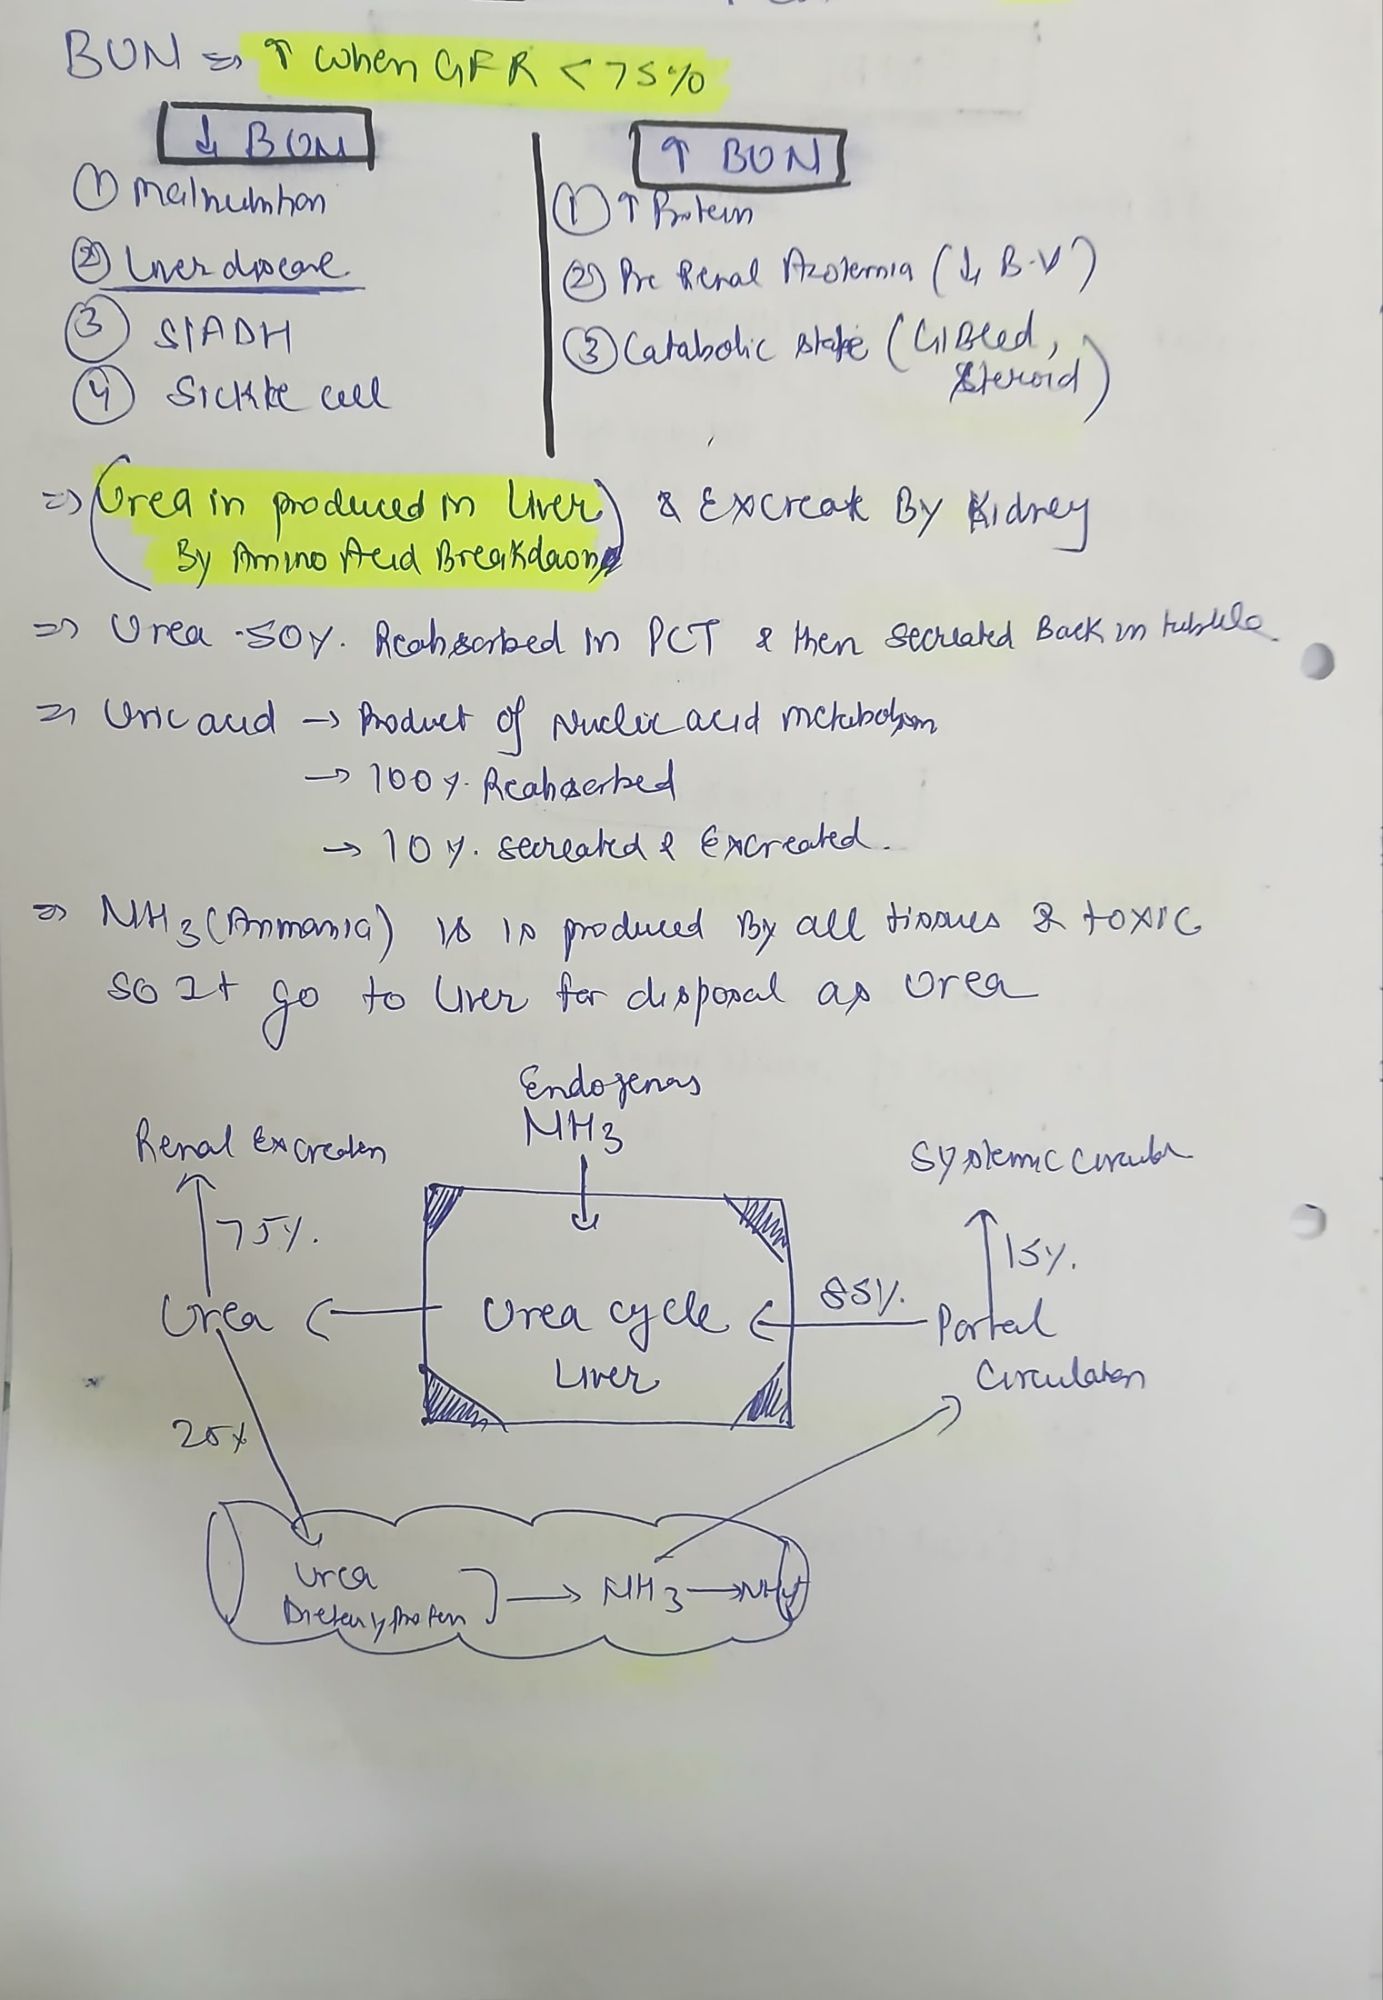 BUN ⇒ ↑ when GFR < 75%
↓ BUN
① Malnutrition
② Liver disease
③ SIADH
④ Sickle cell
↑ BUN
① ↑ Protein
② Pre Renal Azotemia (↓ B.V)
③ Catabolic state (GI Bleed, steroid)
⇒ (Urea in produced in Liver) & Excreate By Kidney
By Amino Acid Breakdown
⇒ Urea - 50%. Reabsorbed in PCT & then secreated Back in tubule
⇒ Uric acid → Product of Nucleic acid metabolism
→ 100%. Reabsorbed
→ 10%. secreated & Excreated.
⇒ NH3 (Ammonia) is is produced By all tissues & toxic
so It go to Liver for disposal as Urea
Endogenas
NH3
Renal Excreation
Systemic
75%.
15%.
Urea
Urea cycle
85%.
Portal
Liver
Circulation
25%
Urea
Dietary protein
→ NH3 → NH4